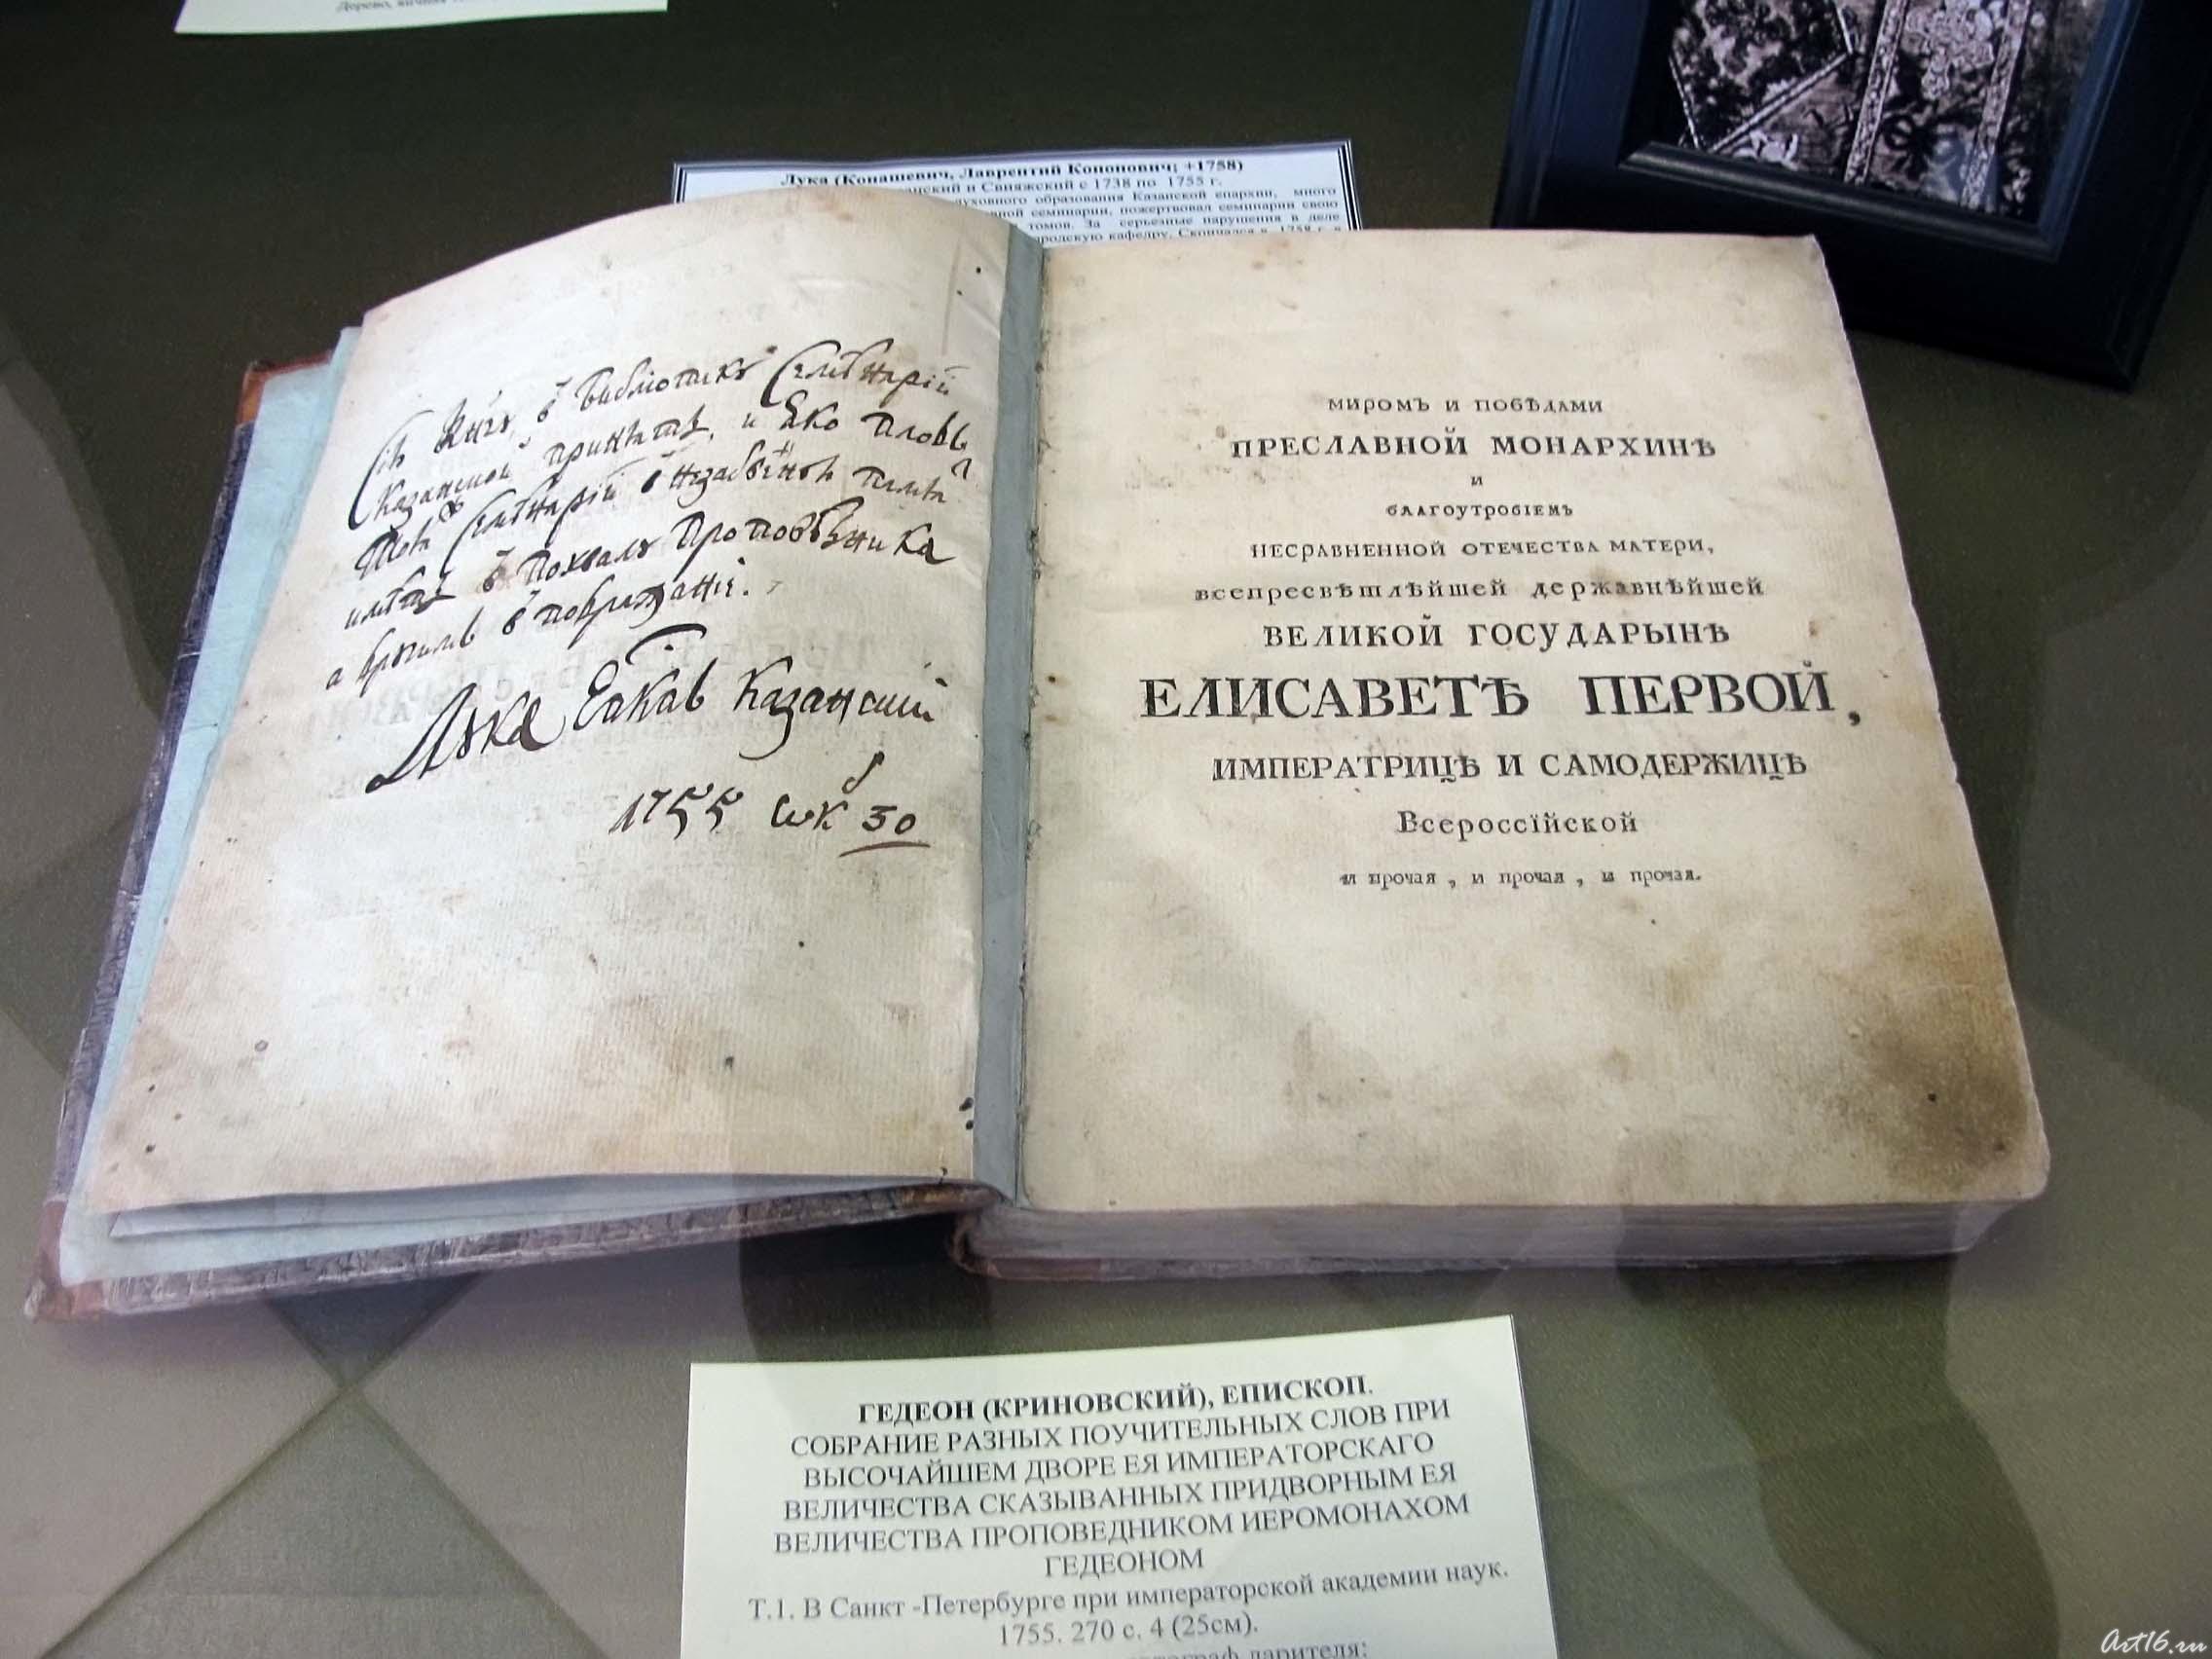 Дерево, яичная
Лука (Конашевич, Лаврентий Кононович; +1758)
нский и Свияжский с 1738 по 1755 г.
духовного образования Казанской епархии, много
ной семинарии, пожертвовал семинарии свою
томов. За серьезные нарушения в деле
городскую кафедру. Скончался в 1758 г. в
Сiѣ Кнгꙋ, в Библiотикꙋ Семiнарiй
Казанской принѣть, и
Семiнарiй в незабвенѣ
в Похвалꙋ Проповѣника
а
Лꙋка Епкпъ Казанскiй
1755 ѡк 30
МИРОМЪ И ПОБѢДАМИ
ПРЕСЛАВНОЙ МОНАРХИНѢ
И
БЛАГОУТРОБIЕМЪ
НЕСРАВНЕННОЙ ОТЕЧЕСТВА МАТЕРИ,
всепресвѣтлѣйшей державнѣйшей
ВЕЛИКОЙ ГОСУДАРЫНѢ
ЕЛИСАВЕТѢ ПЕРВОЙ,
ИМПЕРАТРИЦѢ И САМОДЕРЖИЦѢ
Всероссїйской
и прочая, и прочая, и прочая.
ГЕДЕОН (КРИНОВСКИЙ), ЕПИСКОП.
СОБРАНИЕ РАЗНЫХ ПОУЧИТЕЛЬНЫХ СЛОВ ПРИ
ВЫСОЧАЙШЕМ ДВОРЕ ЕЯ ИМПЕРАТОРСКАГО
ВЕЛИЧЕСТВА СКАЗЫВАННЫХ ПРИДВОРНЫМ ЕЯ
ВЕЛИЧЕСТВА ПРОПОВЕДНИКОМ ИЕРОМОНАХОМ
ГЕДЕОНОМ
Т.1. В Санкт -Петербурге при императорской академии наук.
1755. 270 с. 4 (25см).
автограф дарителя:
Art16.ru